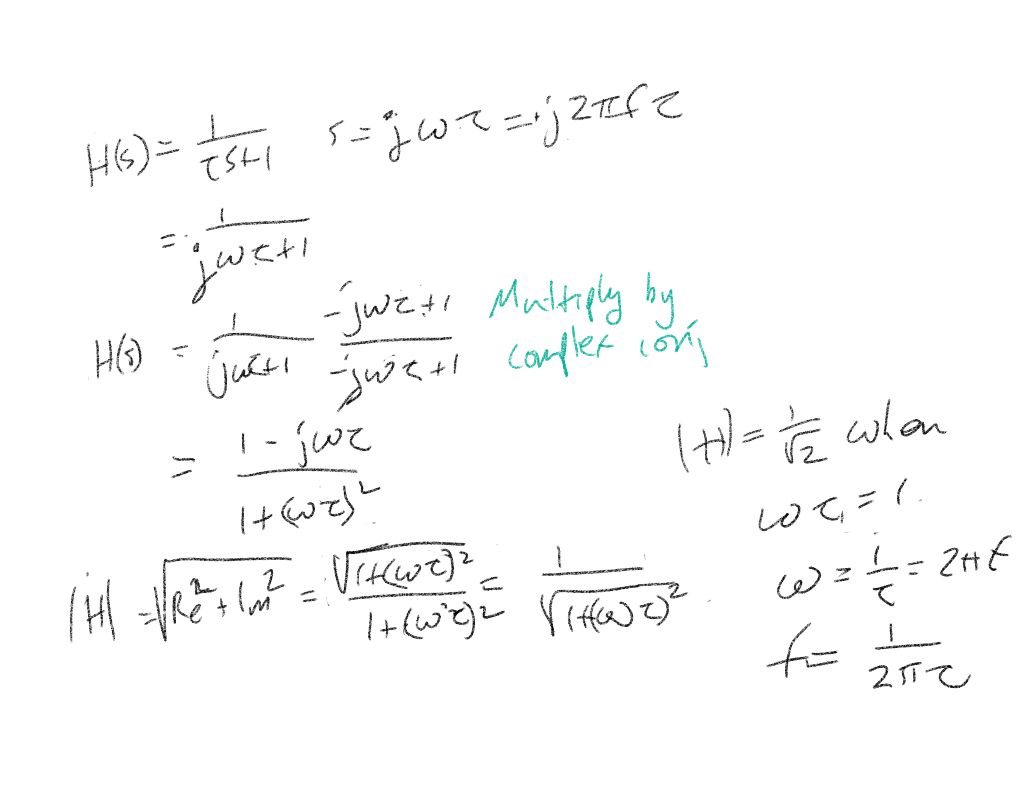 H(s) = 1/(τs+1)   s = jωτ = j2πfτ
= 1/(jωτ+1)
H(s) = 1/(jωτ+1) (-jωτ+1)/(-jωτ+1) Multiply by
complex conj
= (1 - jωτ)/(1+(ωτ)²)
|H| = √(Re²+Im²) = √(1+(ωτ)²)/(1+(ωτ)²) = 1/√(1+(ωτ)²)
|H| = 1/√2 when
ωτ = 1
ω = 1/τ = 2πf
f = 1/(2πτ)